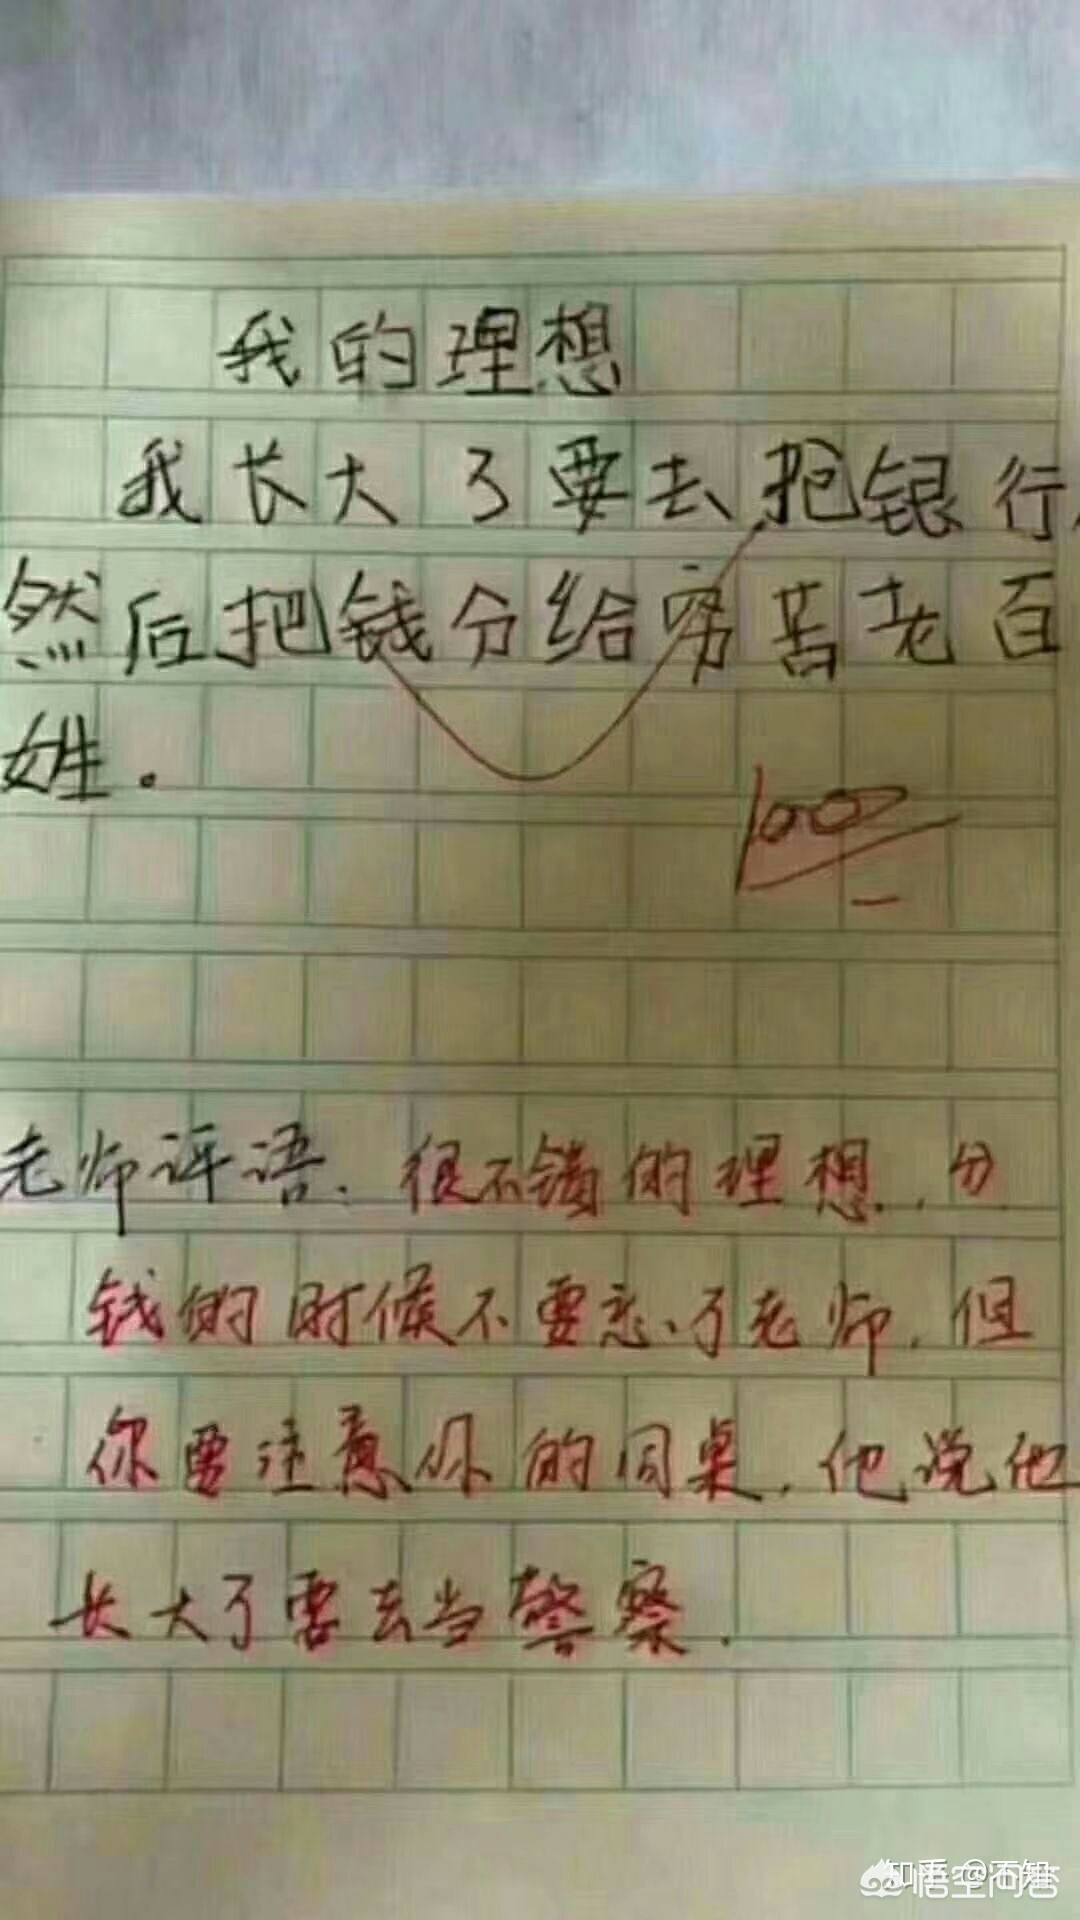 我的理想
我长大了要去抢银行,
然后把钱分给穷苦老百
姓。
100
老师评语：很不错的理想，分
钱的时候不要忘了老师，但
你要注意你的同桌，他说他
长大了要去当警察.
知乎 @不知
悟空问答